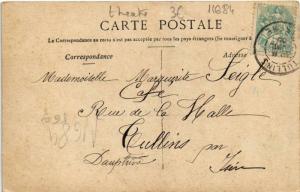 theatre 3€ 11684
CARTE POSTALE
La Correspondance au recto n'est pas acceptée par tous les pays étrangers
Correspondance Adresse
Mademoiselle Marguerite Seigle
Café
Rue de la Halle
Tullins par
Dauphiné Isère
TULLINS